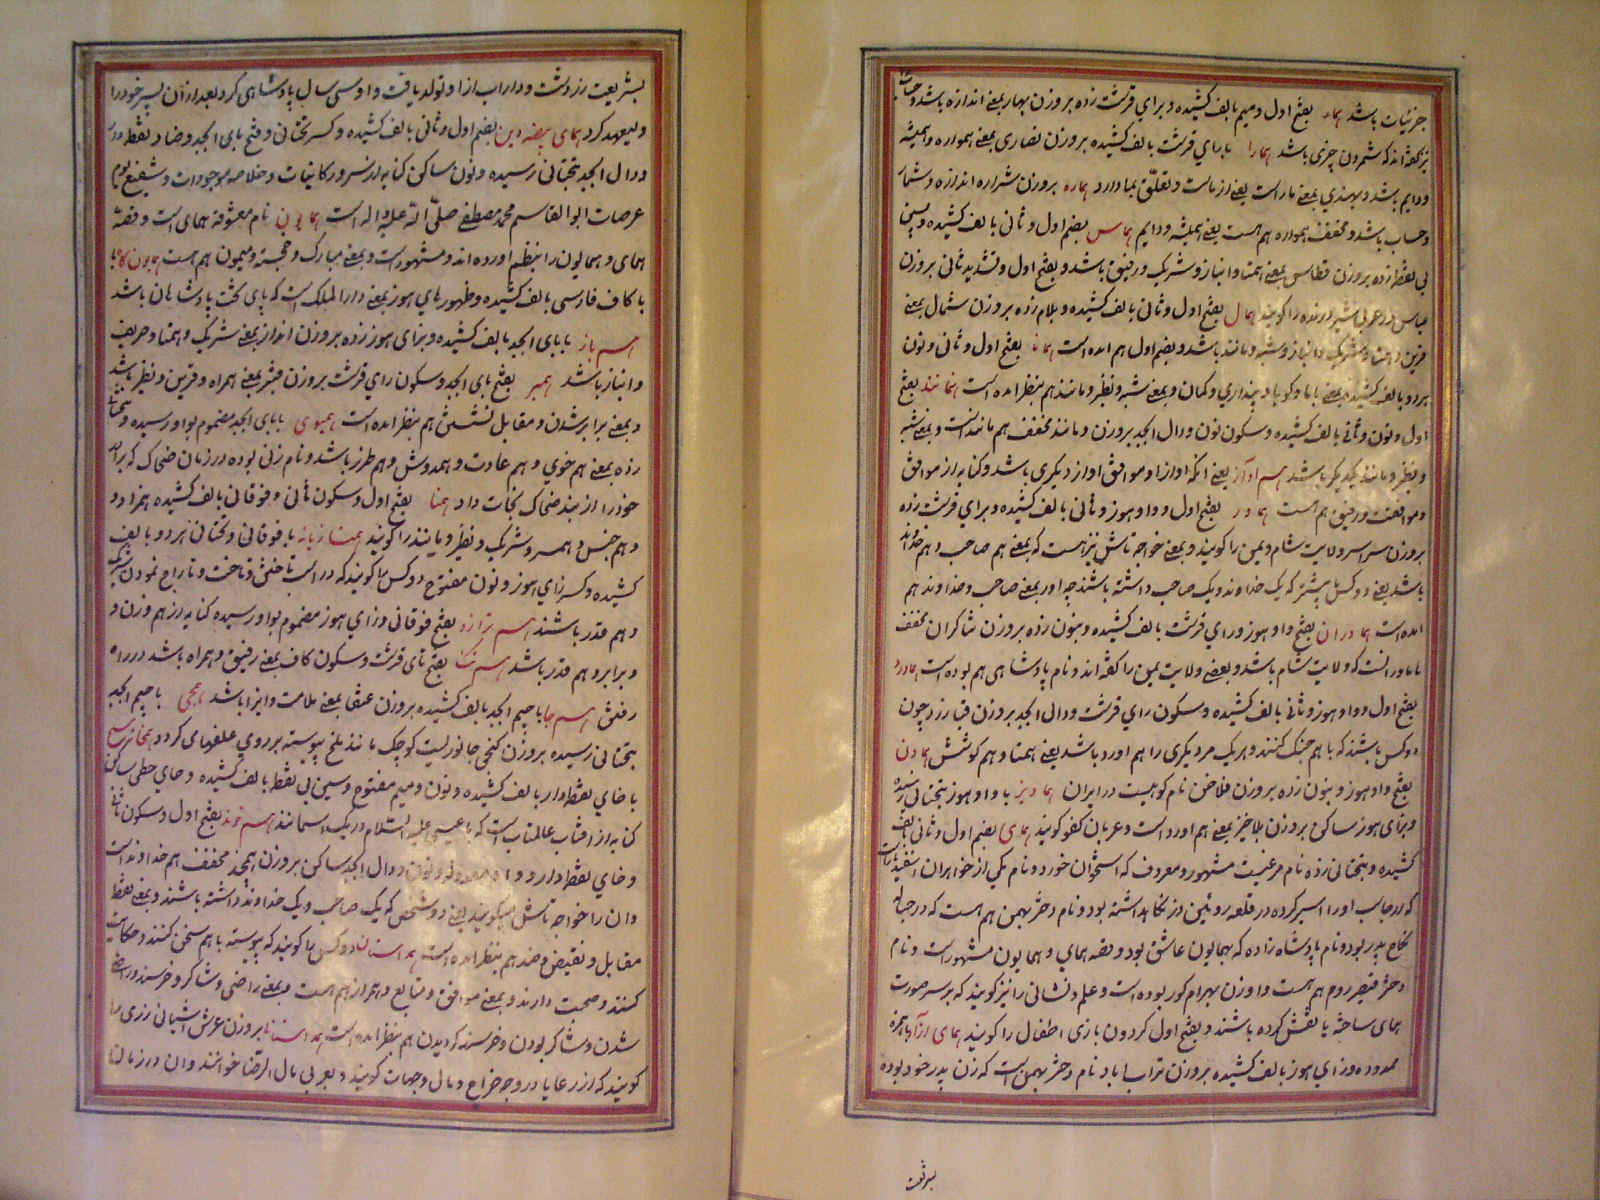 جزئیات باشد همار بفتح اول و میم بالف کشیده و برای قرشت زده بروزن بهار بمعنی اندازه باشد و حساب
نیز گفته‌اند که شمردن چیزی باشد همارا با رای قرشت بالف کشیده بروزن نصاری بمعنی همواره و همیشه
و دایم باشد و بهندی بمعنی ما راست یعنی از ماست و تعلق بما دارد هماره بروزن شراره اندازه و شمار
و حساب باشد و مخفف همواره هم هست یعنی همیشه و دایم هماس بضم اول و ثانی بالف کشیده و بسین
بی نقطه زده بروزن قطاس بمعنی همتا و انباز و شریک و رفیق باشد و بفتح اول و تشدید ثانی بروزن
عباس در عربی شیر درنده را گویند همال بفتح اول و ثانی بالف کشیده و بلام زده بروزن شمال بمعنی
قرین و همتا و شریک و انباز و شبه و مانند باشد و بضم اول هم آمده است همانا بفتح اول و ثانی و نون
هر دو بالف کشیده بمعنی یا ما و گویا و پنداری و گمان و بمعنی شبه و نظیر و مانند هم بنظر آمده است همانند بفتح
اول و نون و ثانی بالف کشیده و سکون نون و دال ابجد بروزن و مانند مخفف هم مانند است و بمعنی شبه
و نظیر و مانند یکدیگر باشد هم آواز یعنی آنکه آواز او موافق آواز دیگری باشد و کنایه از موافق
و موافقت و رفیق هم هست هماور بفتح اول و واو هوز و ثانی بالف کشیده و برای قرشت زده
بروزن سراسر ولایت شام و یمن را گویند و بمعنی خواجه تاش نیز هست که بمعنی هم صاحب و هم خداوند
باشد یعنی دو کس یا بیشتر که یک خداوند و یک صاحب داشته باشند چه اور بمعنی صاحب و خداوند هم
آمده است هماوران بفتح واو هوز و رای قرشت بالف کشیده و بنون زده بروزن شاکران مخفف
هاماورانست که ولایت شام باشد و بعضی ولایت یمن را گفته‌اند و نام پادشاهی هم بوده است هماورد
بفتح اول و واو هوز و ثانی بالف کشیده و سکون رای قرشت و دال ابجد بروزن قبا زرد چون
دو کس باشند که با هم جنک کنند و هر یک مر دیگری را هم آورد باشد یعنی همتا و هم کوشش هماون
بفتح واو هوز و بنون زده بروزن فلاخن نام کوهیست در ایران هماویز با واو هوز بتحتانی رسیده
و بزای هوز ساکن بروزن بلاخیز بمعنی هم آورد است و عربان کفو گویند همای بضم اول و ثانی بالف
کشیده و بتحتانی زده نام مرغیست مشهور و معروف که استخوان خورد و نام یکی از خواهران اسفندیار است
که ارجاسب او را اسیر کرده در قلعه روئین دز نگاه داشته بود و نام دختر بهمن هم هست که در حباله
نکاح پدر بود و نام پادشاه زاده که بهمایون عاشق بود و قصه همای و همایون مشهور است و نام
دختر قیصر روم هم هست و او زن بهرام گور بوده است و علم و نشانی را نیز گویند که بر سر صورت
همای ساخته یا نقش کرده باشند و بفتح اول گردون بازی اطفال را گویند همای آزاد با همزه
ممدوده و زای هوز بالف کشیده بروزن تراب اباد نام دختر بهمن است که زن پدر خود بوده
بشریعت
بشریعت زردشت و داراب از او تولد یافت و او سی سال پادشاهی کرد بعد از آن پسر خود را
ولیعهد کرد همای بیضه دین بضم اول و ثانی بالف کشیده و کسر تحتانی و فتح بای ابجد و ضاد نقطه دار
و دال ابجد بتحتانی رسیده و نون ساکن کنایه از سرور کاینات و خلاصه موجودات و شفیع یوم
عرصات ابو القاسم محمد مصطفی صلی الله علیه و اله است همایون نام معشوقه همای است و قصه
همای و همایون را بنظم آورده‌اند و مشهور است و بمعنی مبارک و خجسته و میمون هم هست همایون گاه با
با کاف فارسی بالف کشیده و ظهور های هوز بمعنی دار الملک است که پای تخت پادشاهان باشد
هم باز با بای ابجد بالف کشیده و بزای هوز زده بروزن انداز بمعنی شریک و همتا و حریف
و انباز باشد همبر بفتح بای ابجد و سکون رای قرشت بروزن قنبر بمعنی همراه و قرین و نظیر باشد
و بمعنی برابر شدن و مقابل نشستن هم بنظر آمده است همبوی با بای ابجد مضموم بواو رسیده و بتحتانی
زده بمعنی هم خوی و هم عادت و همدوش و هم طرز باشد و نام زنی بوده در زمان ضحاک که برادر
خود را از بند ضحاک نجات داد همتا بفتح اول و سکون ثانی و فوقانی بالف کشیده همزاد و
و هم جنس و همسر و شریک و نظیر و مانند را گویند همتازیانه با فوقانی و تحتانی هر دو بالف
کشیده و کسر زای هوز و نون مفتوح دو کس را گویند که در است تاختن و تاخت و تاراج نمودن شریک
و هم قدر باشند هم ترازو بفتح فوقانی و زای هوز مضموم بواو رسیده کنایه از هم وزن و
و برابر و هم قدر باشد هم تک بفتح تای قرشت و سکون کاف بمعنی رفیق و همراه باشد در راه
رفتن هم جا با جیم ابجد بالف کشیده بروزن عنقا بمعنی ملامت و ایزا باشد همجی با جیم ابجد
بتحتانی رسیده بروزن کنجی جانوریست کوچک مانند ملخ پیوسته بر روی علفهای گردد همخانه مسیح
با خای نقطه‌دار بالف کشیده و نون و میم مفتوح و سین بی نقطه بالف کشیده و حای حطی ساکن
کنایه از افتاب عالمتاب است که با عیسی علیه السلام در یک اسمانند هم خوند بفتح اول و سکون ثانی
و خای نقطه‌دار و واو معدوله و نون و دال ابجد ساکن بروزن همچند مخفف هم خداوند است
و ان را خواجه تاش میگویند یعنی دو شخص که یک صاحب و یک خداوند داشته باشند و بمعنی نقطه
مقابل و نقیض و ضد هم بنظر آمده است همداستان دو کس را گویند که پیوسته با هم سخن کنند و حکایت
کنند و صحبت دارند و بمعنی موافق و متابع و همراز هم هست و بمعنی راضی و شاکر و خرسند و راضی
شدن و شاکر بودن و خرسند گردیدن هم بنظر آمده است همداستانی بروزن عرش آشیانی زری را
گویند که از رعایا در وجه خراج و مال وجهات گویند و بعربی مال الرضا خوانند و ان در زمان